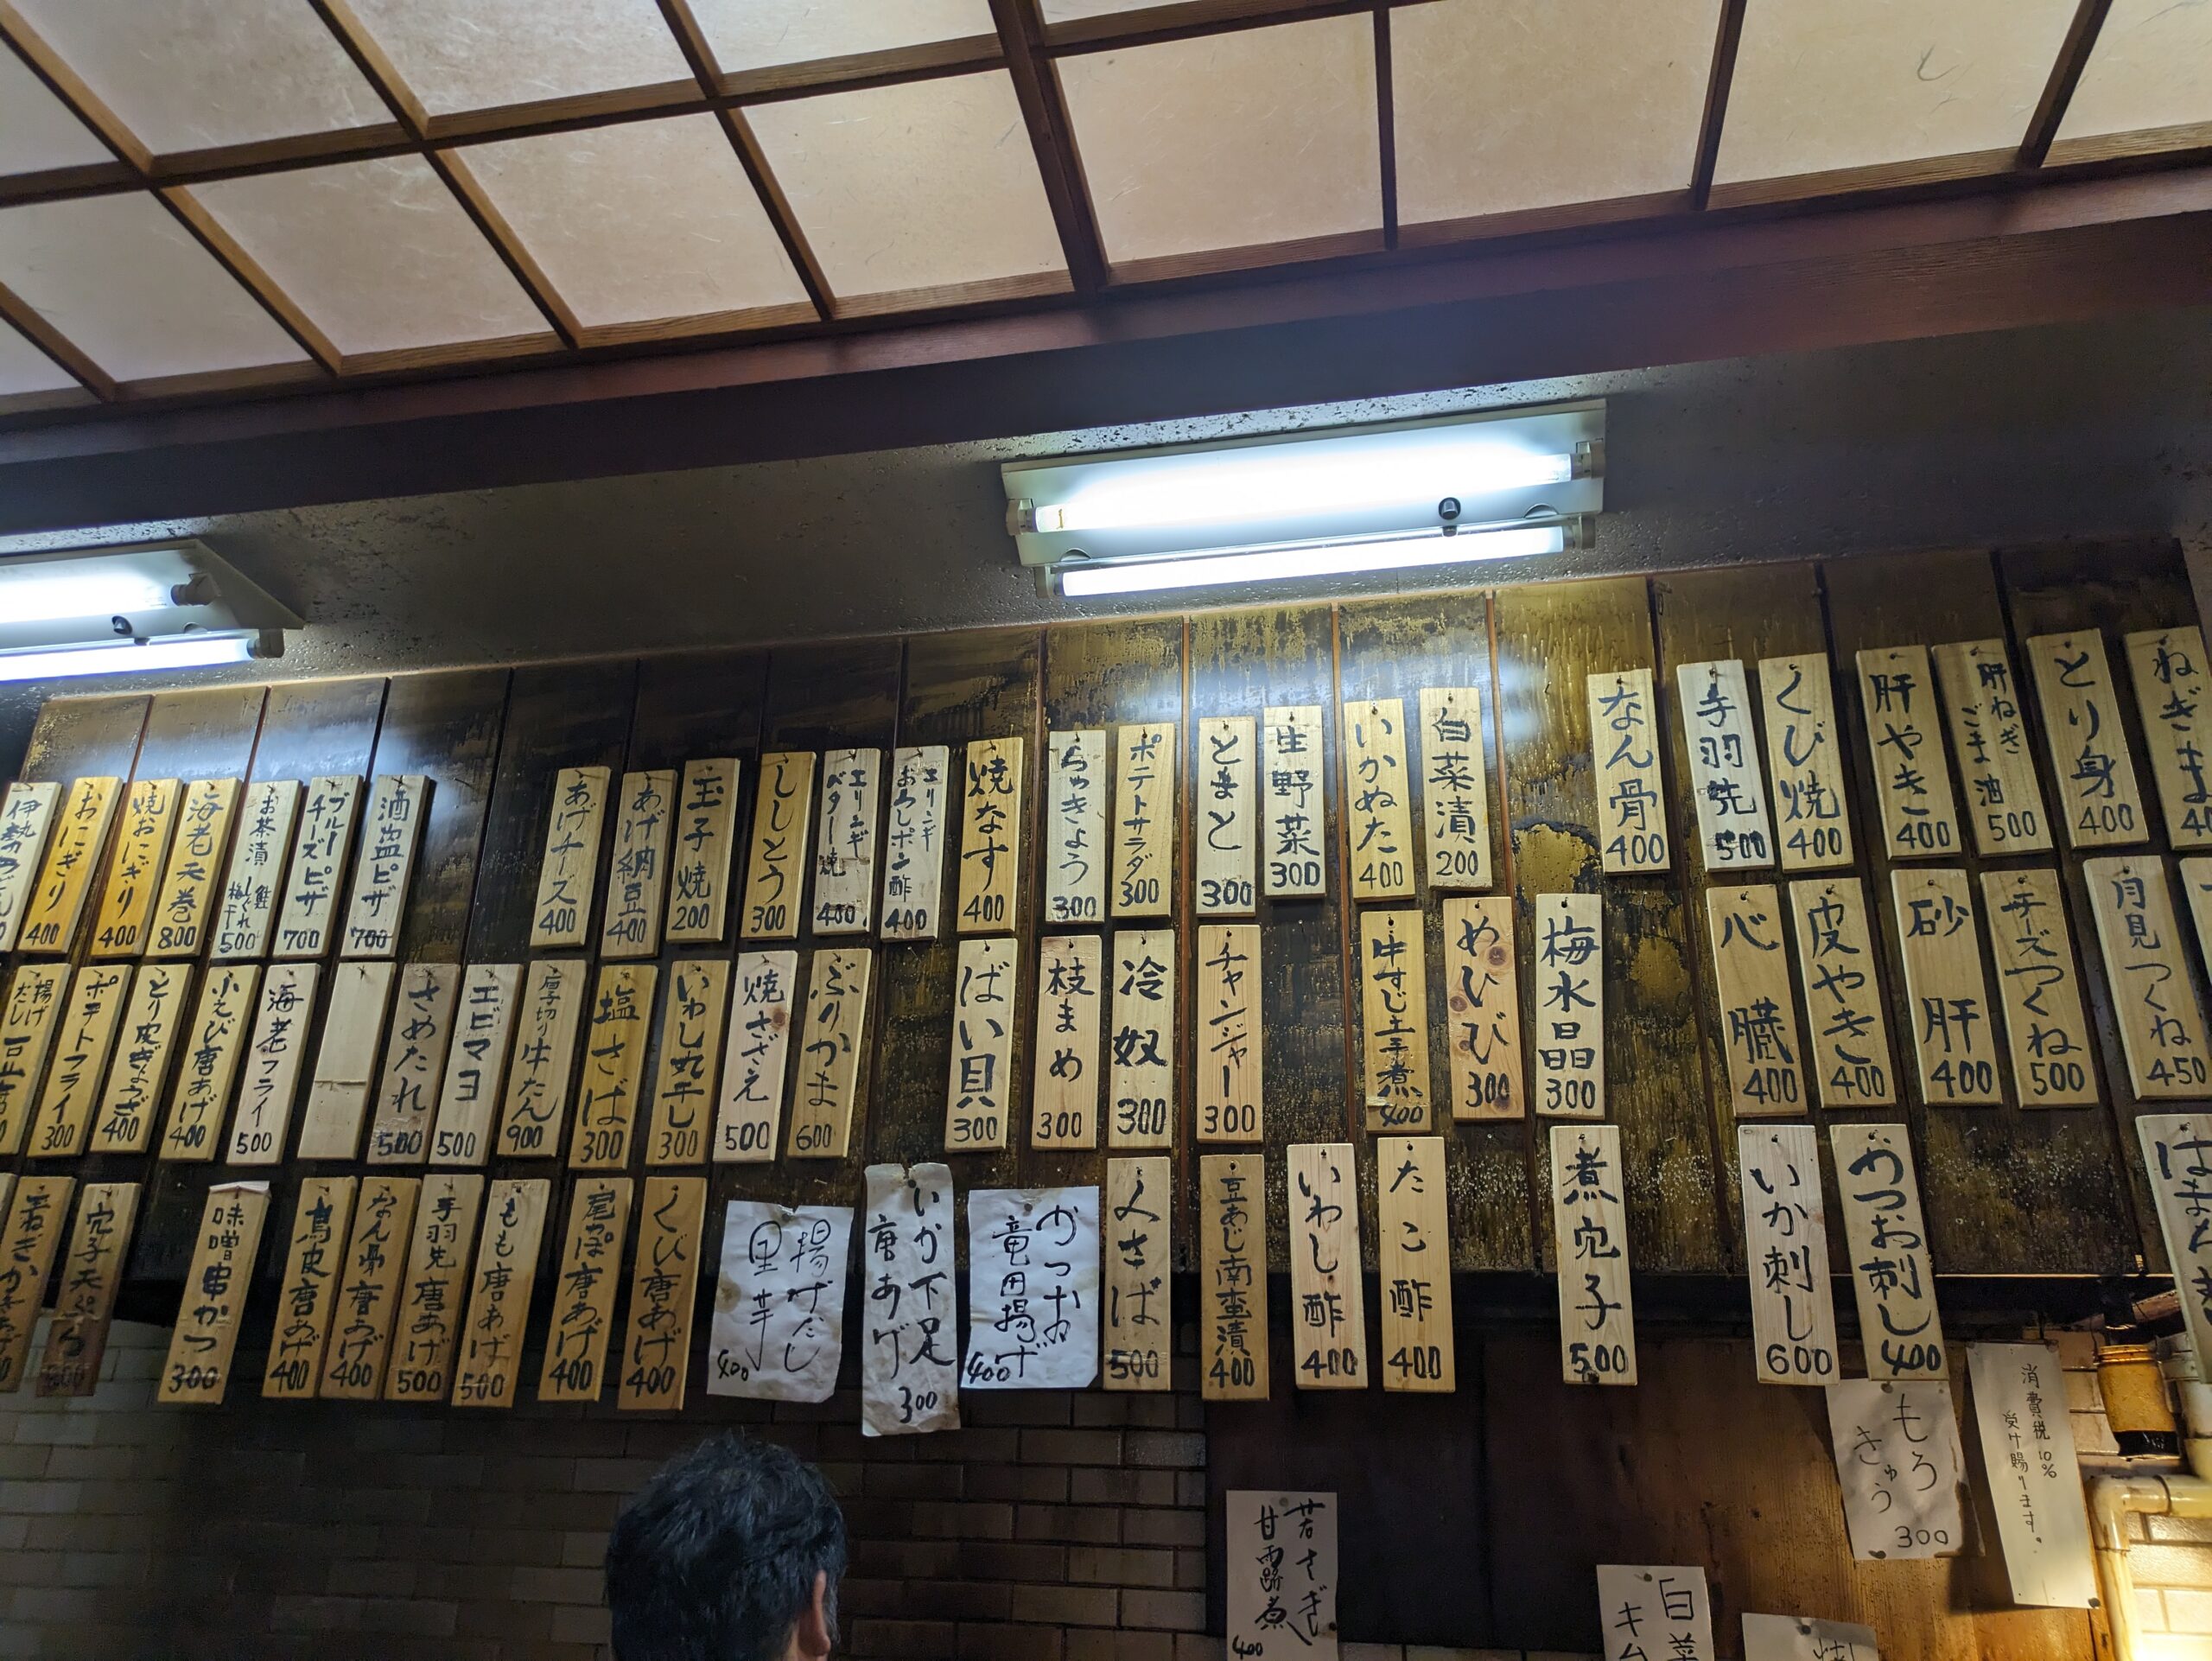 ねぎま
とり身 400
肝ねぎ
ごま油 500
肝やき 400
くび焼 400
手羽先 500
なん骨 400
白菜漬 200
いかぬた 400
生野菜 300
とまと 300
ポテトサラダ 300
らっきょう 300
焼なす 400
エリンギ
おろしポン酢 400
エリンギ
バター焼 400
ししとう 300
玉子焼 200
あげ納豆 400
あげチーズ 400
酒盗ピザ 700
ブルー
チーズピザ 700
お茶漬 鮭
しぐれ
梅干 500
海老天巻 800
焼おにぎり 400
おにぎり 400
伊勢
月見つくね 450
チーズつくね 500
砂肝 400
皮やき 400
心臓 400
梅水晶 300
めひび 300
牛すじ土手煮 400
チャンジャー 300
冷奴 300
枝まめ 300
ばい貝 300
ぶりかま 600
焼さざえ 500
いわし丸干し 300
塩さば 300
厚切り牛たん 900
エビマヨ 500
さめたれ 500
海老フライ 500
小えび唐あげ 400
とり皮ぎょうざ 400
ポテトフライ 300
揚げ
だし
かつお刺し 400
いか刺し 600
煮穴子 500
たこ酢 400
いわし酢 400
豆あじ南蛮漬 400
〆さば 500
かつお
竜田揚げ 400
いか下足
唐あげ 300
揚げだし
里芋 400
くび唐あげ 400
尾ぽ唐あげ 400
もも唐あげ 500
手羽先唐あげ 500
なん骨唐あげ 400
鳥皮唐あげ 400
味噌串かつ 300
穴子天ぷら
消費税10%
受け賜ります。
もろ
きゅう 300
若さぎ
甘露煮 400
白菜
キム